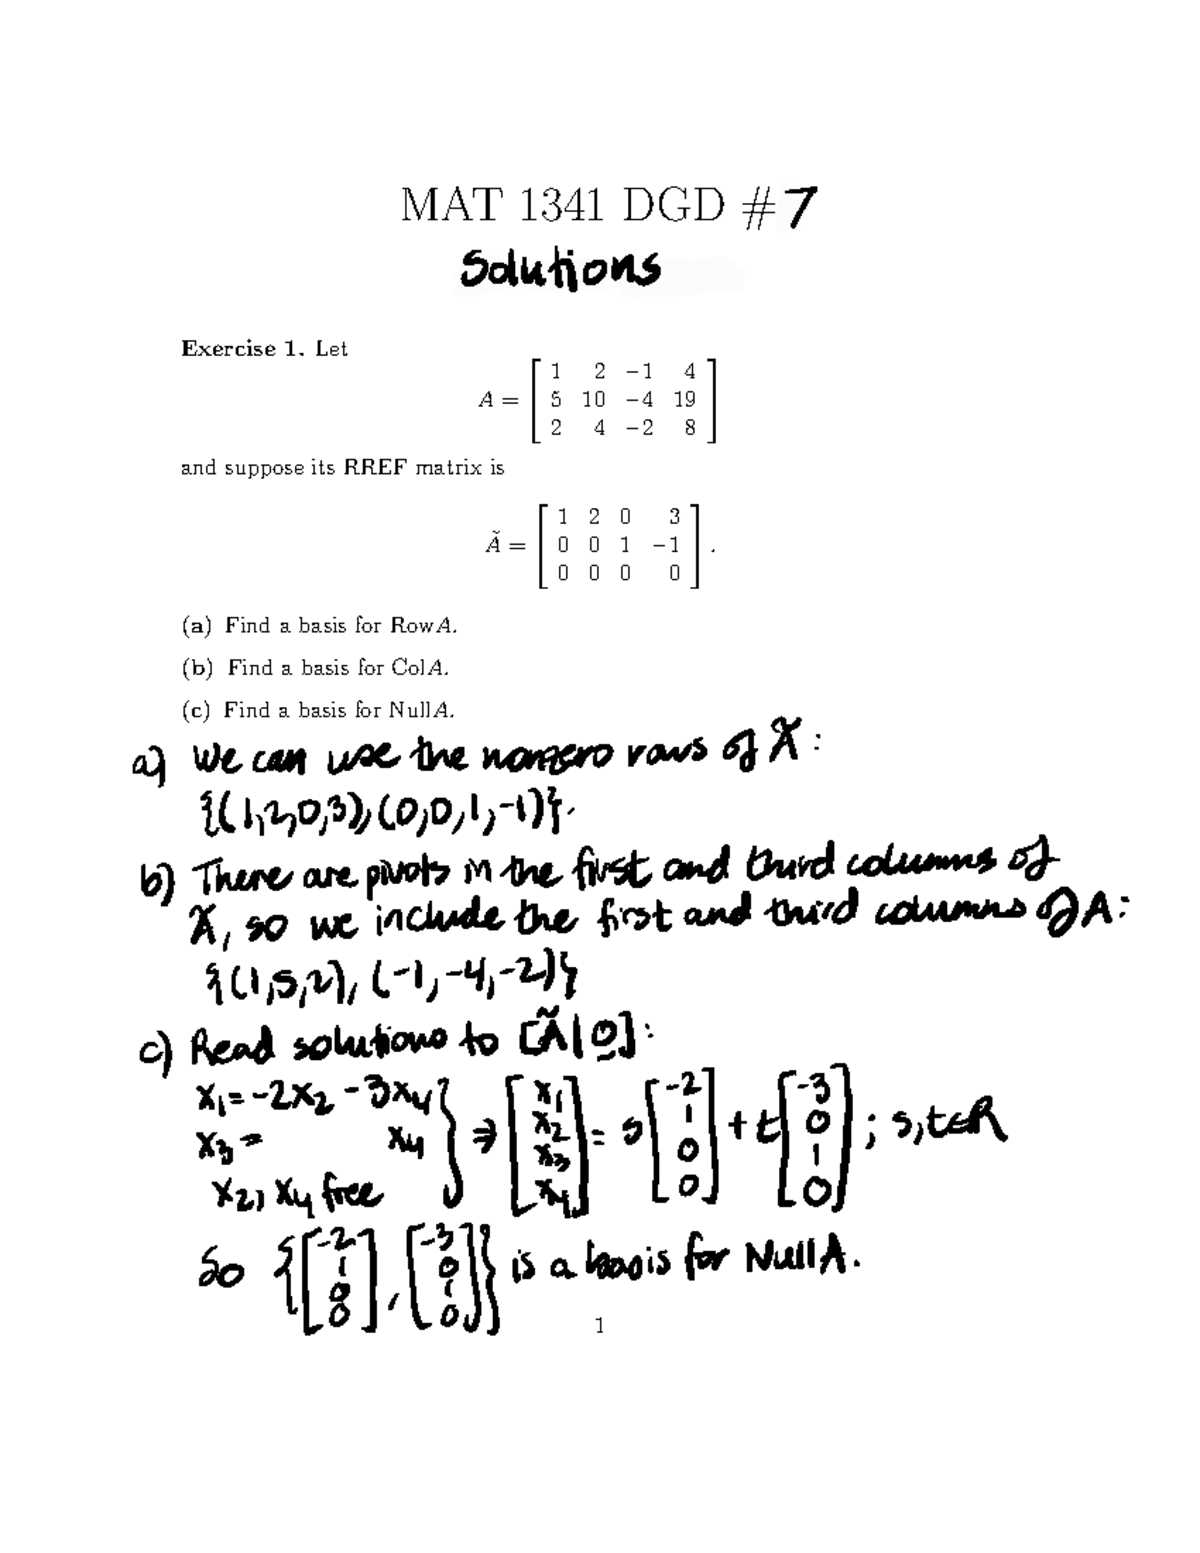 MAT 1341 DGD #7
Solutions
Exercise 1. Let
A = [ 1 2 −1 4
5 10 −4 19
2 4 −2 8 ]
and suppose its RREF matrix is
Ã = [ 1 2 0 3
0 0 1 −1
0 0 0 0 ] .
(a) Find a basis for RowA.
(b) Find a basis for ColA.
(c) Find a basis for NullA.
a) We can use the nonzero rows of Ã:
{(1,2,0,3),(0,0,1,-1)}.
b) There are pivots in the first and third columns of
Ã, so we include the first and third columns of A:
{(1,5,2), (-1,-4,-2)}
c) Read solutions to [Ã|0]:
x₁ = -2x₂ - 3x₄
x₃ = x₄
x₂, x₄ free } ⇒ [x₁ x₂ x₃ x₄] = s[-2 1 0 0] + t[-3 0 1 0] ; s,t∈R
So {[-2 1 0 0], [-3 0 1 0]} is a basis for NullA.
1